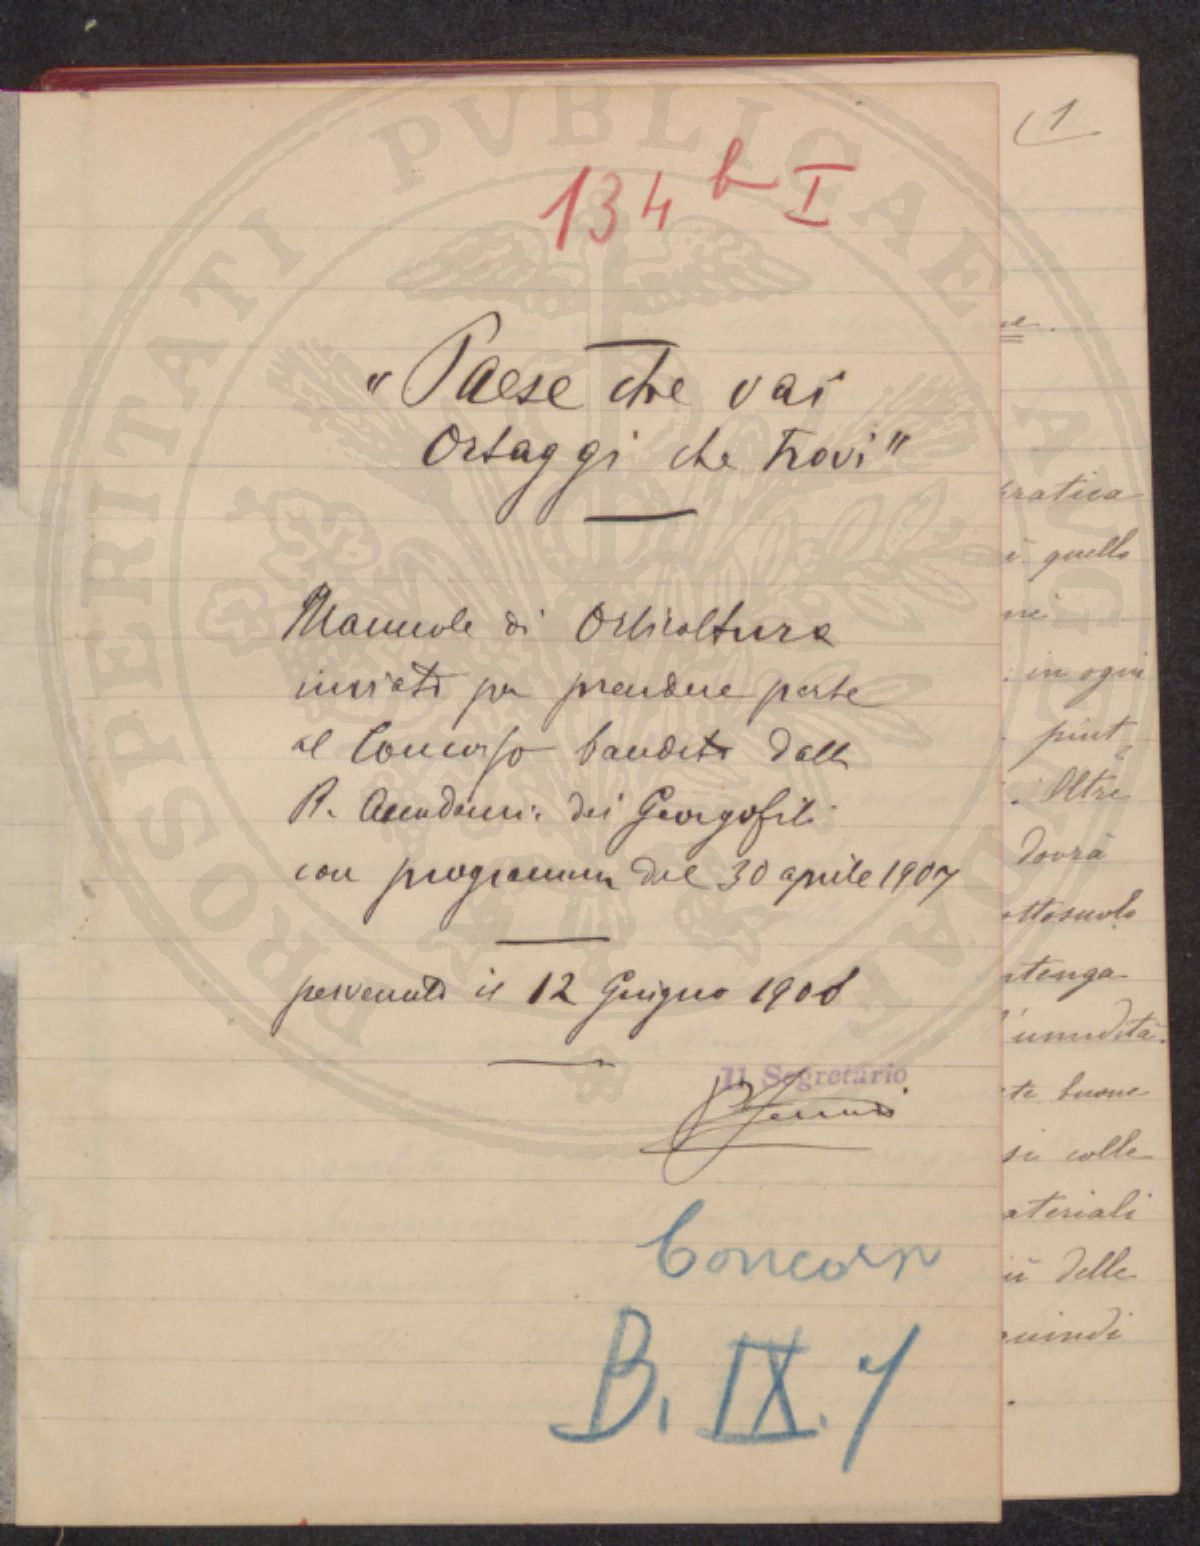 134 b I
"Paese che vai
Ortaggi che trovi"
Manuale di Orticoltura
inviato per prendere parte
al Concorso bandito dalla
R. Accademia dei Georgofili
con programma del 30 aprile 1907
pervenuto il 12 Giugno 1908
Il Segretario
Concorso
B. IX. 7
1
ne.
pratica
è quello
ni
: in ogni
piut
. Oltre
dovrà
ottosuolo
ntenga
l'umidità.
te buone
si colle
ateriali
iù delle
quindi
PROSPERITATI PVBLICAE AVGENDAE